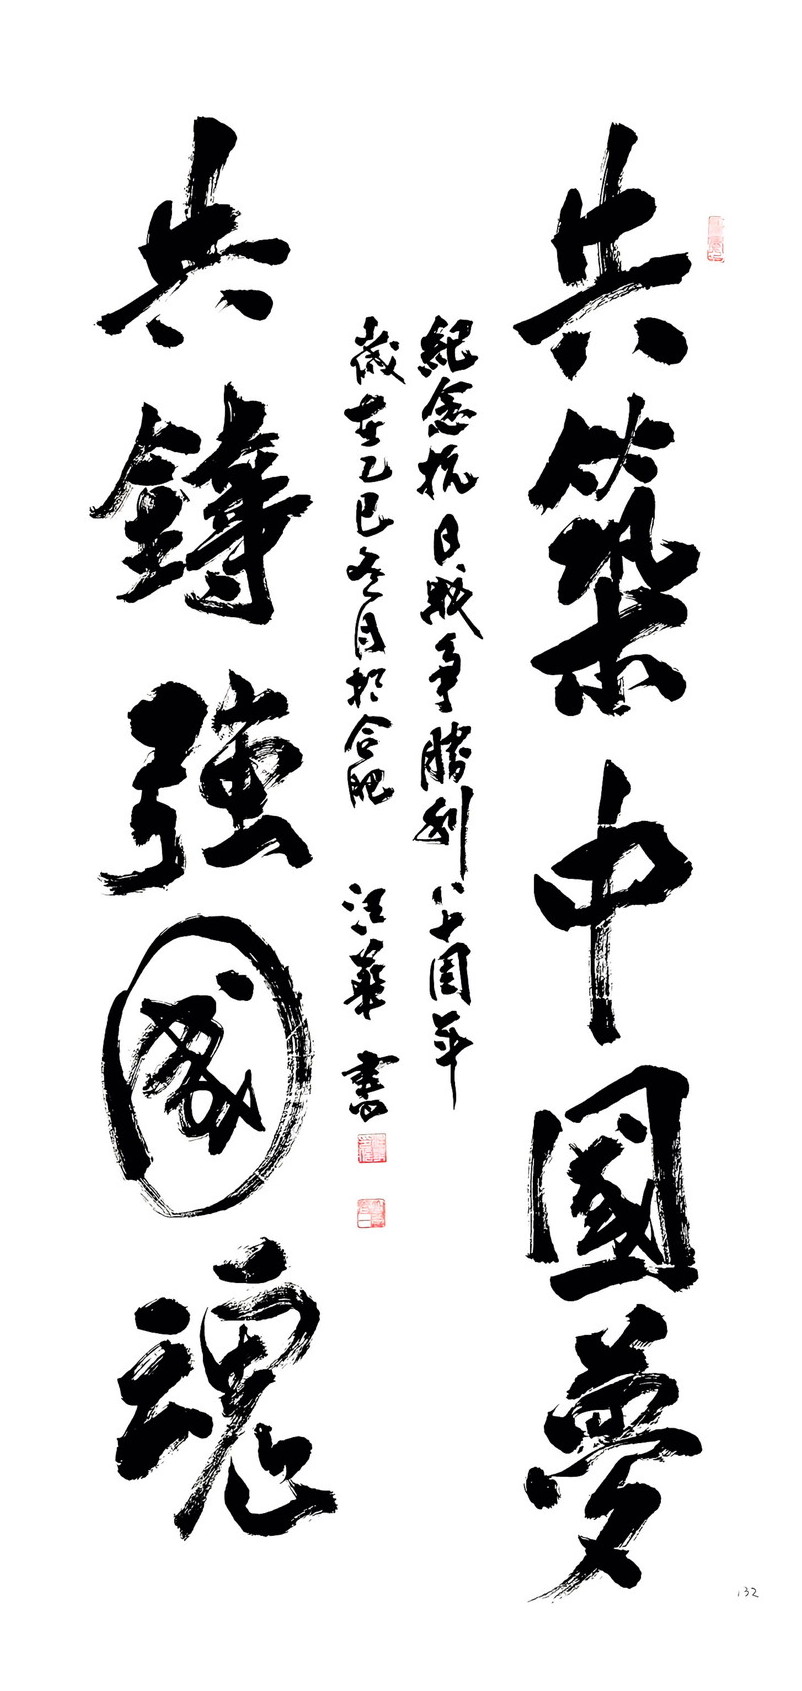 共築中國夢
紀念抗日戰爭勝利八十周年
歲在乙巳冬月於合肥 汪華書
共鑄強國魂
132